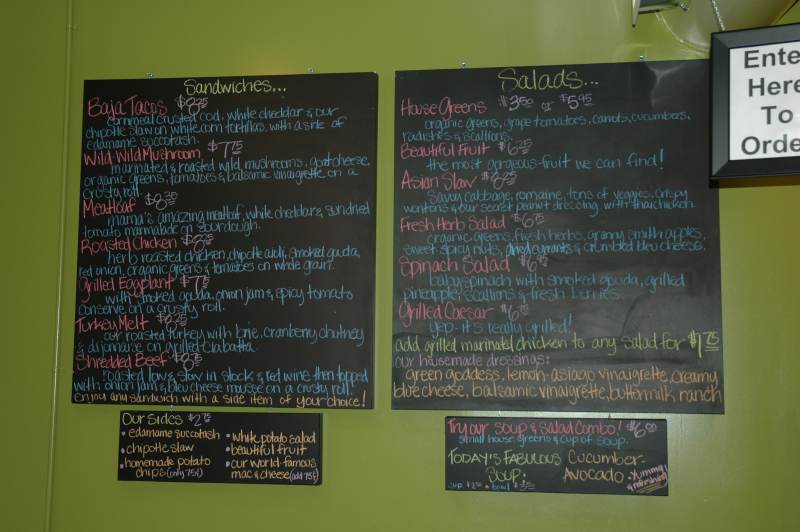 Sandwiches...
Baja Tacos $8.25
cornmeal crusted cod, white cheddar & our
chipotle slaw on white corn tortillas, with a side of
edamame succotash.
Wild Wild Mushroom $7.75
marinated & roasted wild mushrooms, goat cheese,
organic greens, tomatoes & balsamic vinaigrette on a
crusty roll.
Meatloaf
mama's amazing meatloaf, white cheddar & sundried
tomato marmalade on sourdough.
Roasted Chicken
herb roasted chicken, chipotle aioli, smoked gouda,
red onion, organic greens & tomatoes on whole grain.
Grilled Eggplant
with smoked gouda, onion jam & spicy tomato
conserve on a crusty roll.
Turkey Melt
our roasted turkey with brie, cranberry chutney
& dijonnaise on grilled ciabatta.
Shredded Beef
roasted low & slow in stock & red wine then topped
with onion jam & bleu cheese mousse on a crusty roll.
Enjoy any sandwich with a side item of your choice!
Salads...
House Greens $3.50 or $5.95
organic greens, grape tomatoes, carrots, cucumbers,
radishes & scallions.
Beautiful Fruit $6.25
the most gorgeous fruit we can find!
Asian Slaw $8.25
savoy cabbage, romaine, tons of veggies, crispy
wontons & our secret peanut dressing with thai chicken.
Fresh Herb Salad
organic greens, fresh herbs, granny smith apples,
sweet spicy nuts, dried currants & crumbled bleu cheese.
Spinach Salad $6.95
baby spinach with smoked gouda, grilled
pineapple, scallions & fresh berries.
Grilled Caesar
yep - it's really grilled!
add grilled marinated chicken to any salad for $1.75
our housemade dressings:
green goddess, lemon-asiago vinaigrette, creamy
blue cheese, balsamic vinaigrette, buttermilk ranch
Enter
Here
To
Order
Our Sides $2.75
• edamame succotash
• chipotle slaw
• homemade potato
chips (only 75¢)
• white potato salad
• beautiful fruit
• our world-famous
mac & cheese (add 75¢)
Try our soup & salad combo!
small house greens & cup of soup.
Today's Fabulous
Soup:
Cucumber-
Avocado
Yummy
& refreshing
cup • bowl